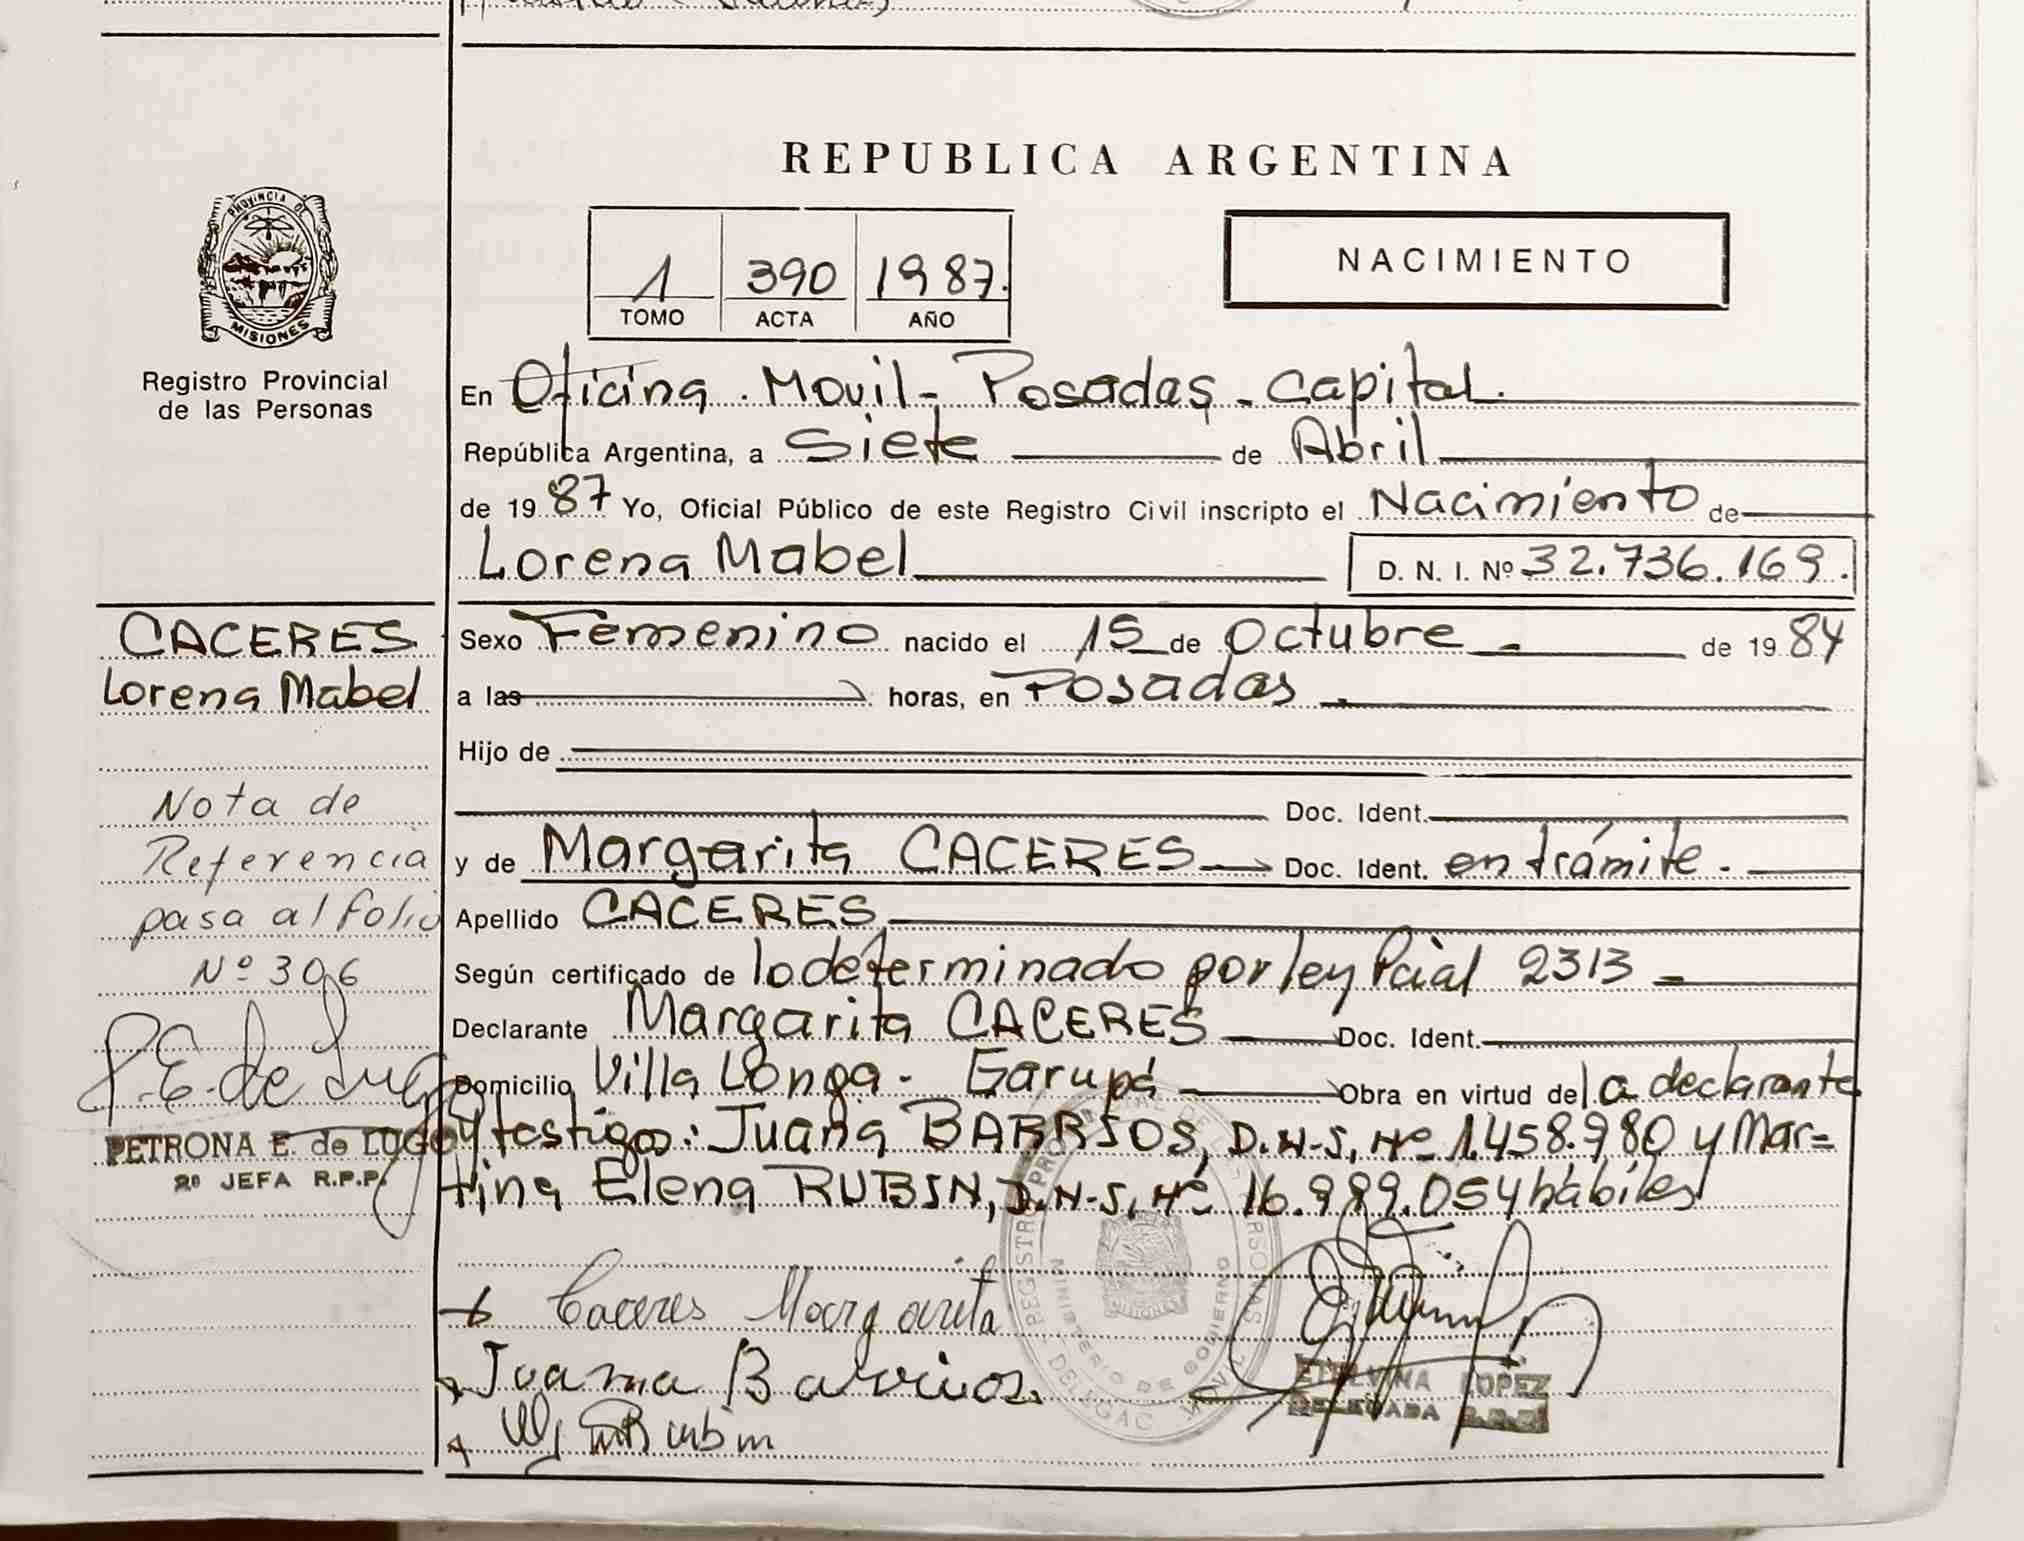 REPUBLICA ARGENTINA
PROVINCIA DE
MISIONES
Registro Provincial
de las Personas
1 390 1987.
TOMO ACTA AÑO
NACIMIENTO
En Oficina Movil - Posadas - Capital.
República Argentina, a Siete de Abril
de 1987 Yo, Oficial Público de este Registro Civil inscripto el Nacimiento de
Lorena Mabel D. N. I. Nº 32.736.169.
CACERES
Lorena Mabel
Nota de
Referencia
pasa al folio
Nº 306
P.E. de Lugo
PETRONA E. de LUGO
2º JEFA R.P.P.
Sexo Femenino nacido el 15 de Octubre de 1984
a las horas, en Posadas
Hijo de
Doc. Ident.
y de Margarita CACERES Doc. Ident. en trámite.
Apellido CACERES
Según certificado de lo determinado por ley Pcial 2313
Declarante Margarita CACERES Doc. Ident.
Domicilio Villa Longa - Garupá Obra en virtud de la declarante
y testigos: Juana BARRIOS, D.N.I. Nº 1.458.980 y Mar=
tina Elena RUBIN, D.N.I. Nº 16.989.054 hábiles
Caceres Margarita
Juana Barrios
Rubin
ETELVINA LOPEZ
DELEGADA R.P.P.
MINISTERIO DE GOBIERNO